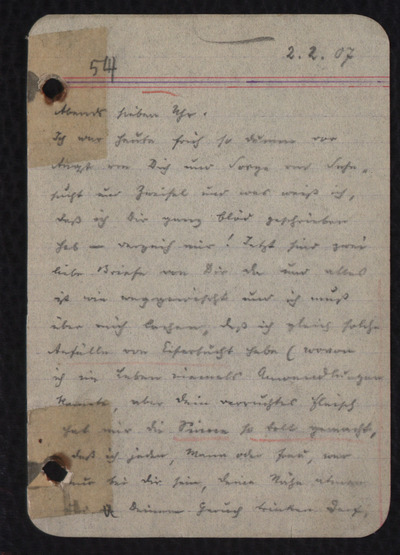 54
2.2.07
Abends sieben Uhr.
Ich war heute früh so dumm vor
Angst um Dich und Sorge und Sehn-
sucht und Zweifel und was weiß ich,
daß ich Dir ganz blöd geschrieben
hab – verzeih mir! Jetzt sind zwei
liebe Briefe von Dir da und alles
ist wie weggewischt und ich muß
über mich lachen, daß ich gleich solche
Anfälle von Eifersucht habe (wovon
ich im Leben niemals Anwandlungen
kannte, aber Dein verruchtes Fleisch
hat mir die Sinne so toll gemacht,
daß ich jeden, Mann oder Frau, wer
nur bei Dir sein, Deine Nähe atmen
Deinen Geruch trinken darf,